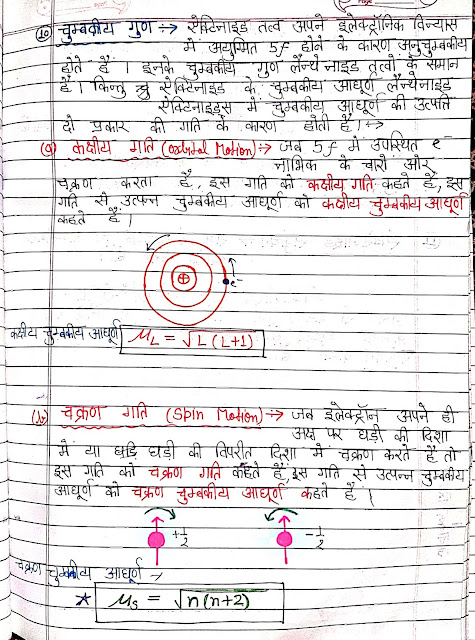 (10) चुम्बकीय गुण :→ ऐक्टिनाइड तत्व अपने इलेक्ट्रॉनिक विन्यास
में अयुग्मित 5f होने के कारण अनुचुम्बकीय
होते हैं । इनके चुम्बकीय गुण लैन्थेनाइड तत्वों के समान
हैं । किन्तु ऐक्टिनाइड के चुम्बकीय आघूर्ण लैन्थेनाइड
ऐक्टिनाइड्स में चुम्बकीय आघूर्ण की उत्पत्ति
दो प्रकार की गति के कारण होती है । :→
(a) कक्षीय गति (Orbital Motion) :→ जब 5f में उपस्थित e⁻
नाभिक के चारो ओर
चक्रण करता है, इस गति को कक्षीय गति कहते हैं, इस
गति से उत्पन्न चुम्बकीय आघूर्ण को कक्षीय चुम्बकीय आघूर्ण
कहते हैं ।
+
e⁻
कक्षीय चुम्बकीय आघूर्ण μL = √L(L+1)
(b) चक्रण गति (Spin Motion) :→ जब इलेक्ट्रॉन अपने ही
अक्ष पर घड़ी की दिशा
में या घड़ि घड़ी की विपरीत दिशा में चक्रण करते हैं तो
इस गति को चक्रण गति कहते हैं, इस गति से उत्पन्न चुम्बकीय
आघूर्ण को चक्रण चुम्बकीय आघूर्ण कहते हैं ।
+1/2 -1/2
चक्रण चुम्बकीय आघूर्ण →
* μs = √n(n+2)